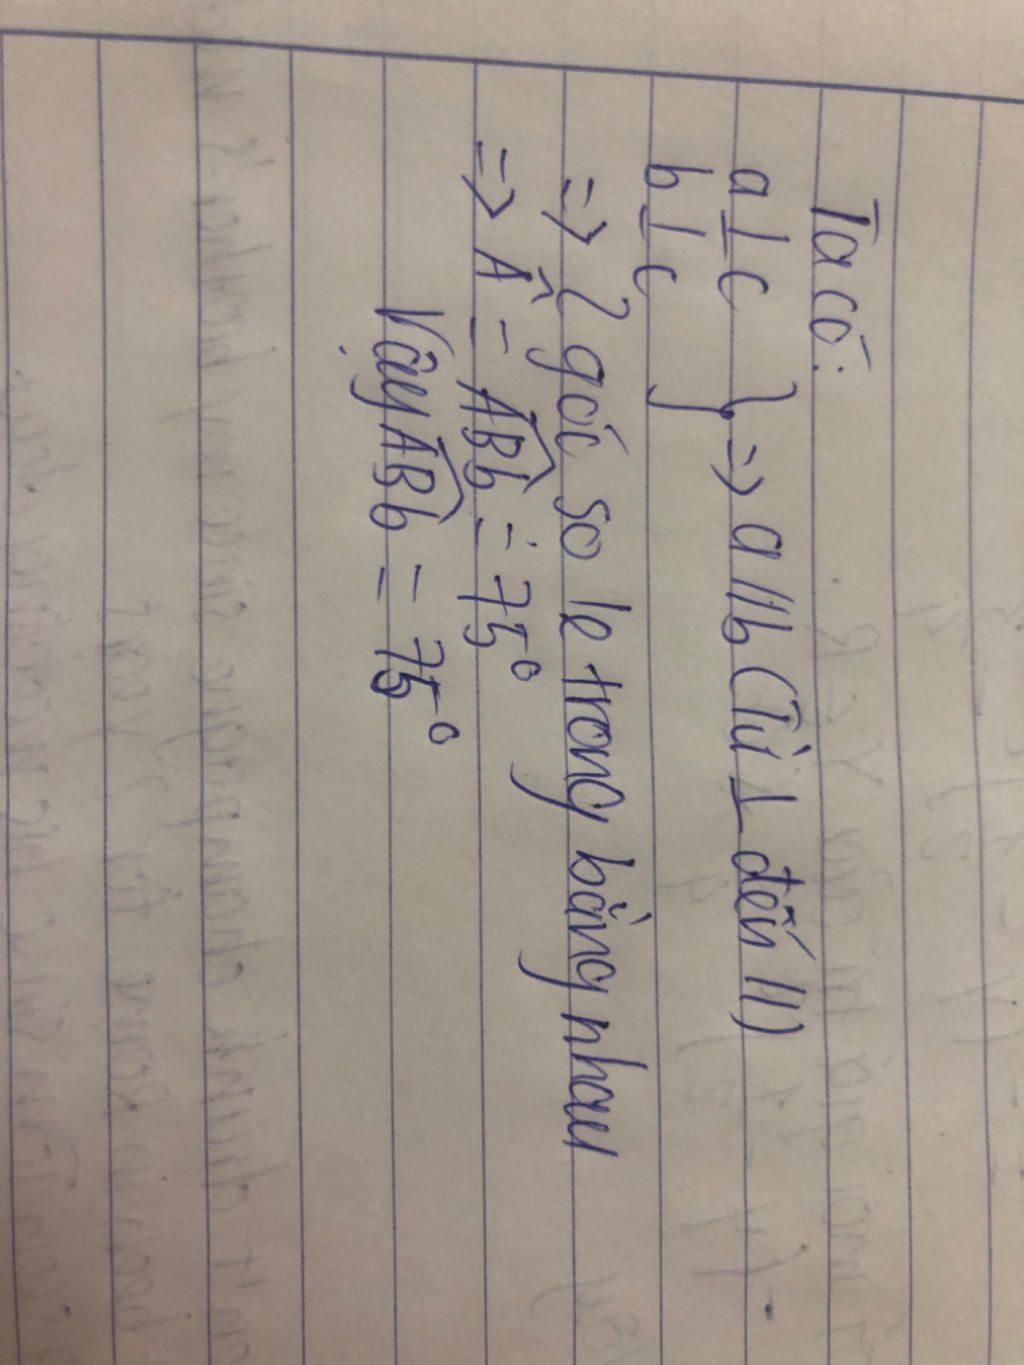 Ta có:
a ⊥ c
b ⊥ c } => a // b (Từ ⊥ đến //)
=> 2 góc so le trong bằng nhau
=> Â = ABb = 75°
Vậy ABb = 75°